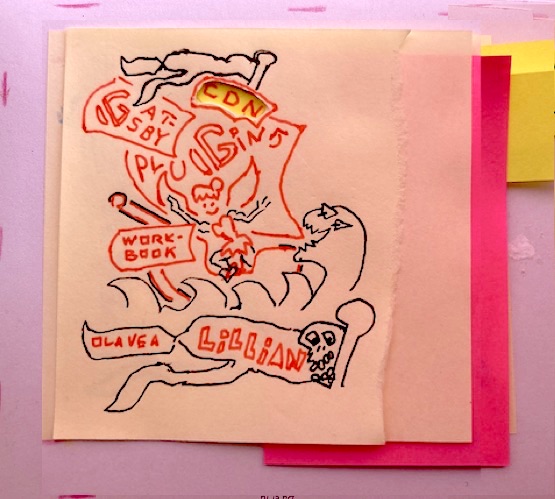 CDN
GAT-
SBY
PLUGiN5
WORK-
BOOK
OLAVEA
LiLLiAN